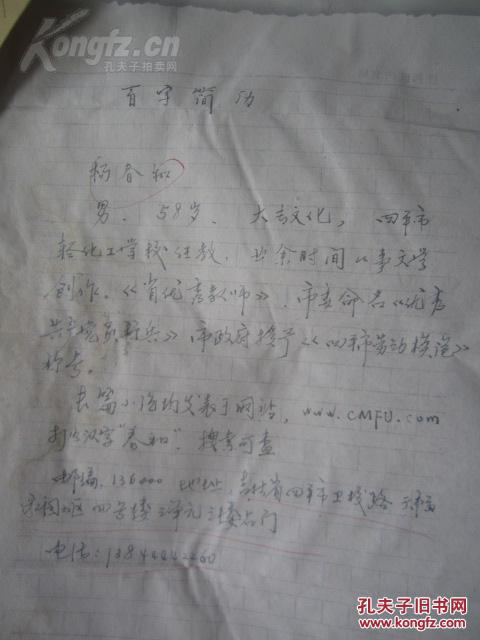 Kongfz.cn
孔夫子拍卖网
百字简历
杨春和
男、58岁、大专文化,四平市
轻化工学校任教,业余时间从事文学
创作。《省优秀教师》、市委命名《优秀
共产党员标兵》市政府授予《四平市劳动模范》
称号。
长篇小说均发表于网站,www.CMFU.com
打以汉字"春和",搜索可查
邮编:136000 地址,吉林省四平市卫线路
小区四号楼3单元3楼右门
电话:13844442260
Kongfz.com
孔夫子旧书网